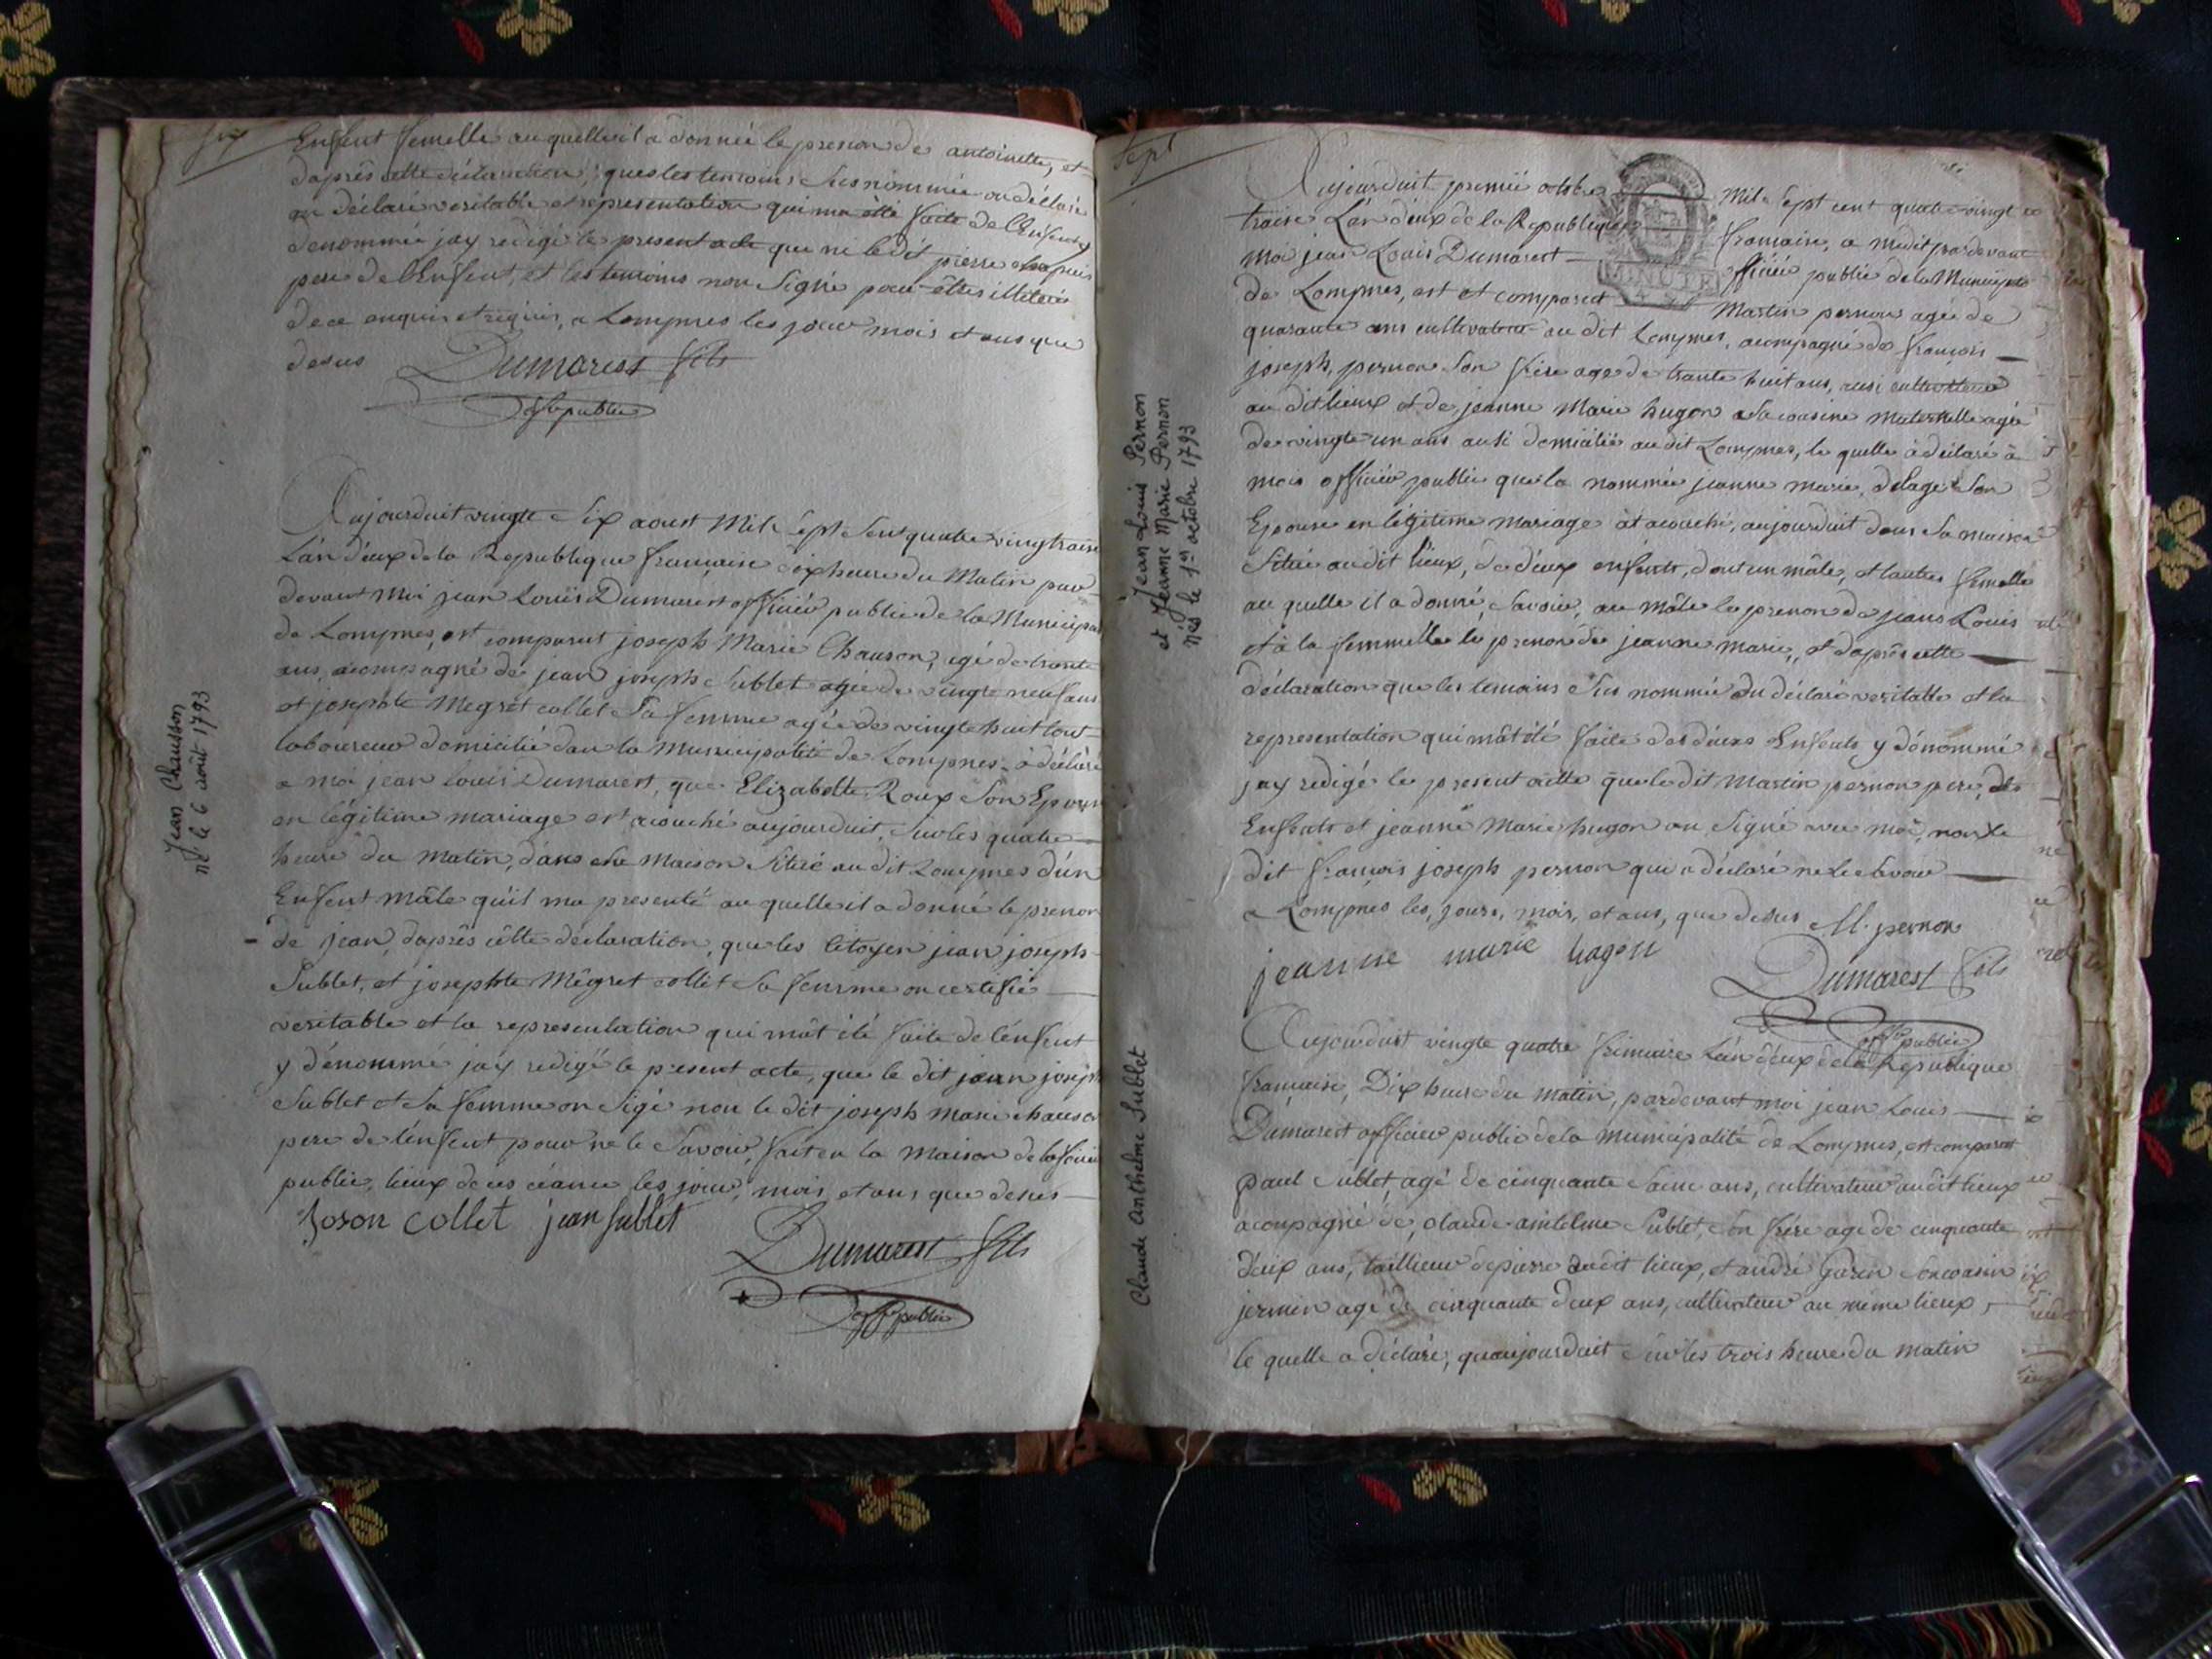 six
Enfent femelle au quelle il a donnée le prenon de antoinette, et
daprès cette déclaration, que les temoins susnommée on déclaré
déclaré veritable et representation qui ma été faite de l'Enfent y
denommée jay redigé le present acte que ni le dit pierre
pere de l'Enfent, et les temoins non signé pour êttres illeterés
de ce enquis et requis, a Lompnes les jour mois et ans que
desus
Dumarest fils
offr public
Jean Chausson
né le 6 août 1793
Aujourduit vingte six aoust Mil sept sent quatre vingt traise
L'an deux de la Republique française dix heure du Matin par
devant Moi jean Louis Dumarest officiér public de la Municipa
de Lompnes, est comparut joseph Marie Chauson, agé de trante
ans, acompagné de jean joseph Sublet agée de vingte neuf ans
et josephte Megret collet sa femme agée de vingte huit tout
laboureur domicilié dan la Municipalité de Lompnes, à déclaré
a moi jean louis Dumarest, que Elizabette Roux son Epouse
en légitime mariage est acouché aujourduit, sur les quatre
heure du matin, dans sa Maison sitiée au dit Lompnes d'ún
Enfent mâle qúil ma presenté au quelle il a donné le prenon
de jean, daprês cêtte déclaration, que les Citoyen jean joseph
Sublet, et josephte Mêgret collet sa femme on certifié
veritable et la representation qui mât été faite de l'énfent
y dénommé jay redigé le present acte, que le dit jean joseph
Sublet et sa femme on sigé non le dit joseph marie chauson
pere de l'énfent pour ne le savoir, fait en la maison
public, lieux de ces céance les jour, mois, et ans que desus
Joson collet jean sublet
Dumarest fils
offr public
Sept
Jean Louis Pernon
et Jeanne Marie Pernon
nés le 1er octobre 1793
Aujourduit premié octobre Mil sept cent quatre vingt
traise L'án deux de la Republique fransaise, a medit pardevant
moi jean Louis Dumarest officiér public de la Municipte
de Lompnes, est et comparut Martin pernon agée de
quarante ans cultivateur au dit Lompnes, acompagné de françois
joseph, pernon son frere age de trante huit ans, ausi cultivateur
au dit lieux et de jeanne Marie hugon sa cousine maternelle agée
de vingte un ans ausi domicilié au dit Lompnes, le quelle à déclaré à
mois officiér public que la nommée jeanne marie, delage son
Epouse en légitime mariage ât acouché, aujourduit dans sa maison
sitiée audit lieux, de deux enfents, dont un mâle, et lautre femelle
au quelle il a donné, savoir, au mâle le prenon de jeans Louis
et à la femmelle le prenon de jeanne marie, et daprês cette
déclaration que les temoins sus nommée on déclaré veritable et la
representation qui mât été faite des deux Enfents y dénommé
jay redigé le present actte que le dit Martin pernon pere, des
Enfents et jeanne Marie hugon on signé avec moi, non le
dit françois joseph pernon qui a déclaré ne le savoir
a Lompnes les, jours, mois, et ans, que desus M. pernon
jeanne marie hagon
Dumarest fils
offr public
Claude Anthelme Sublet
Aujourduit vingte quatre frimaire L'án deux de la Republique
française, Dix heure du matin, pardevant moi jean Louis
Dumarest officier public de la municipalité de Lompnes, est comparut
paul Sublet, agé de cinquante saine ans, cultivateur audit lieux
acompagné de, claude antelme Sublet, son frére age de cinquante
deux ans, taillieur depierre audit lieux, et andré Garin son cousin
jermin agé de cinquante deux ans, cultivateur au même lieux,
le quelle a déclaré, quaujourduit sur les trois heure du matin